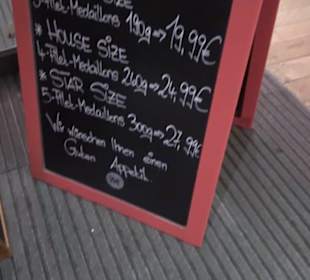 SIZE
3-Filet-Medaillons 190g⇒19,99€
* HOUSE SIZE
4-Filet-Medaillons 240g⇒24,99€
* STAR SIZE
5-Filet-Medaillons 300g⇒27,99€
Wir wünschen Ihnen einen
Guten Appetit.